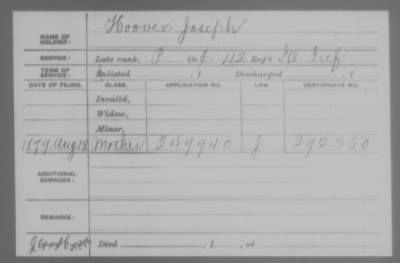 NAME OF SOLDIER: Hoover, Joseph
SERVICE: Late rank, P Co. 112 Reg't Inf.
TERM OF SERVICE: Enlisted , 1 Discharged , 1
DATE OF FILING. CLASS. APPLICATION NO. LAW. CERTIFICATE NO.
Invalid,
Widow,
Minor,
1879 Aug 18 Mother 249940 J 292550
ADDITIONAL SERVICES:
REMARKS:
Died , 1 , at